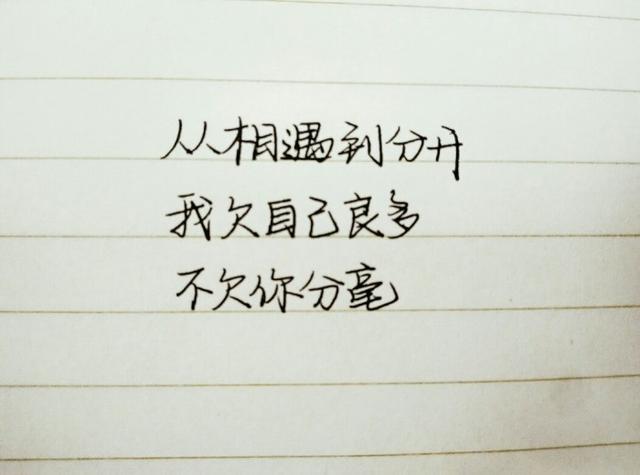 从相遇到分开
我欠自己良多
不欠你分毫